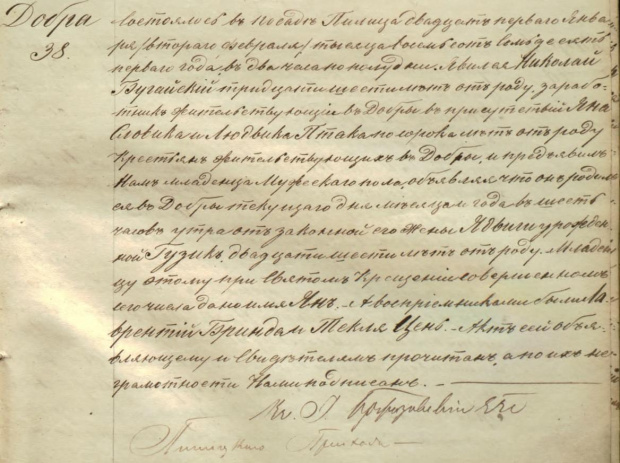 Добра
38.
Состоялось въ посадѣ Пилица двадцать перваго Янва-
ря /втораго Февраля/ тысяча восемьсотъ семьдесятъ
перваго года, въ два часа по полудни. Явился Николай
Бугайскій тридцати шести лѣтъ отъ роду, зарабо-
тникъ жительствующій въ Добры, въ присутствіи Яна
Словика и Людвика Птака по сорока лѣтъ отъ роду
крестьянъ жительствующихъ въ Добры, и предъявилъ
намъ младенца мужескаго пола, объявляя что онъ родил-
ся въ Добры текущаго дня мѣсяца и года въ шесть
часовъ утра отъ законной его жены Ядвиги урожден-
ной Гузикъ, двадцати шести лѣтъ отъ роду. Младен-
цу этому при Святомъ Крещеніи совершенномъ
сего числа дано имя Янъ. А воспріемниками были Ла-
врентій Гринда и Текля Цень. Актъ сей объя-
вляющему и свидѣтелямъ прочитанъ, а по ихъ не-
грамотности Нами подписанъ.
Кс.
Пилицкаго Прихода